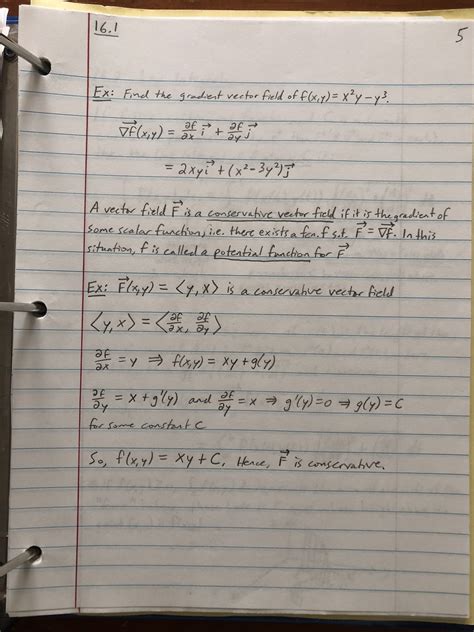 16.1
5
Ex: Find the gradient vector field of f(x,y) = x²y − y³.
∇⃗f(x,y) = ∂f/∂x i⃗ + ∂f/∂y j⃗
= 2xy i⃗ + (x² − 3y²) j⃗
A vector field F⃗ is a conservative vector field if it is the gradient of
some scalar function, i.e. there exists a fcn. f s.t. F⃗ = ∇⃗f. In this
situation, f is called a potential function for F⃗
Ex: F⃗(x,y) = ⟨y, x⟩ is a conservative vector field
⟨y, x⟩ = ⟨∂f/∂x, ∂f/∂y⟩
∂f/∂x = y ⇒ f(x,y) = xy + g(y)
∂f/∂y = x + g'(y) and ∂f/∂y = x ⇒ g'(y) = 0 ⇒ g(y) = C
for some constant C
So, f(x,y) = xy + C, Hence, F⃗ is conservative.